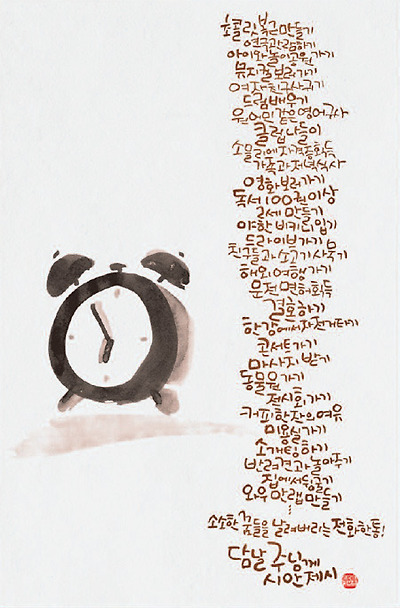 초콜릿복근만들기
연극관람하기
아이와놀이공원가기
뮤지컬보러가기
여자친구사귀기
드럼배우기
원어민같은영어구사
클럽나들이
소믈리에자격증획득
가족과저녁식사
영화보러가기
독서100권이상
2세만들기
야한비키니입기
드라이브가기
친구들과소고기사묵기
해외여행가기
운전면허획득
결혼하기
한강에서자전거타기
콘서트가기
마사지받기
동물원가기
전시회가기
커피한잔의여유
미용실가기
소개팅하기
반려견과놀아주기
집에서뒹굴기
와우만랩만들기
⋮
소소한 꿈들을날려버리는전화한통!
담날 주님께
시안제시